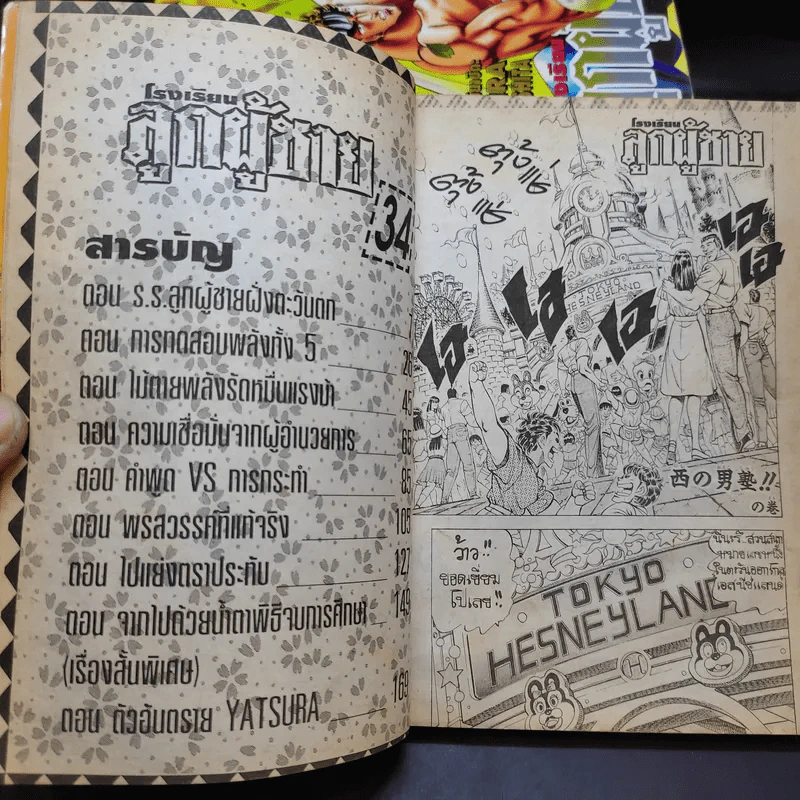 โรงเรียน
ลูกผู้ชาย
34
สารบัญ
ตอน ร.ร.ลูกผู้ชายฝั่งตะวันตก
ตอน การทดสอบพลังทั้ง 5
ตอน ไม้ตายพลังรัดหมื่นแรงม้า 45
ตอน ความเชื่อมั่นจากผู้อำนวยการ 65
ตอน คำพูด VS การกระทำ 85
ตอน พรสวรรค์ที่แท้จริง 105
ตอน ไปแย่งตราประทับ 127
ตอน จากไปด้วยน้ำตาพิธีจบการศึกษา 149
(เรื่องสั้นพิเศษ)
ตอน ตัวอันตราย YATSURA 169
โรงเรียน
ลูกผู้ชาย
ตุ้ง แช่
ตุ้ง แช่
TOKYO
HESNEYLAND
เฮ
เฮ
เฮ
เฮ
เฮ
西の男塾!!
の巻
ว้าว!!
ยอดเยี่ยม
ไปเลย!!
TOKYO
HESNEYLAND
H